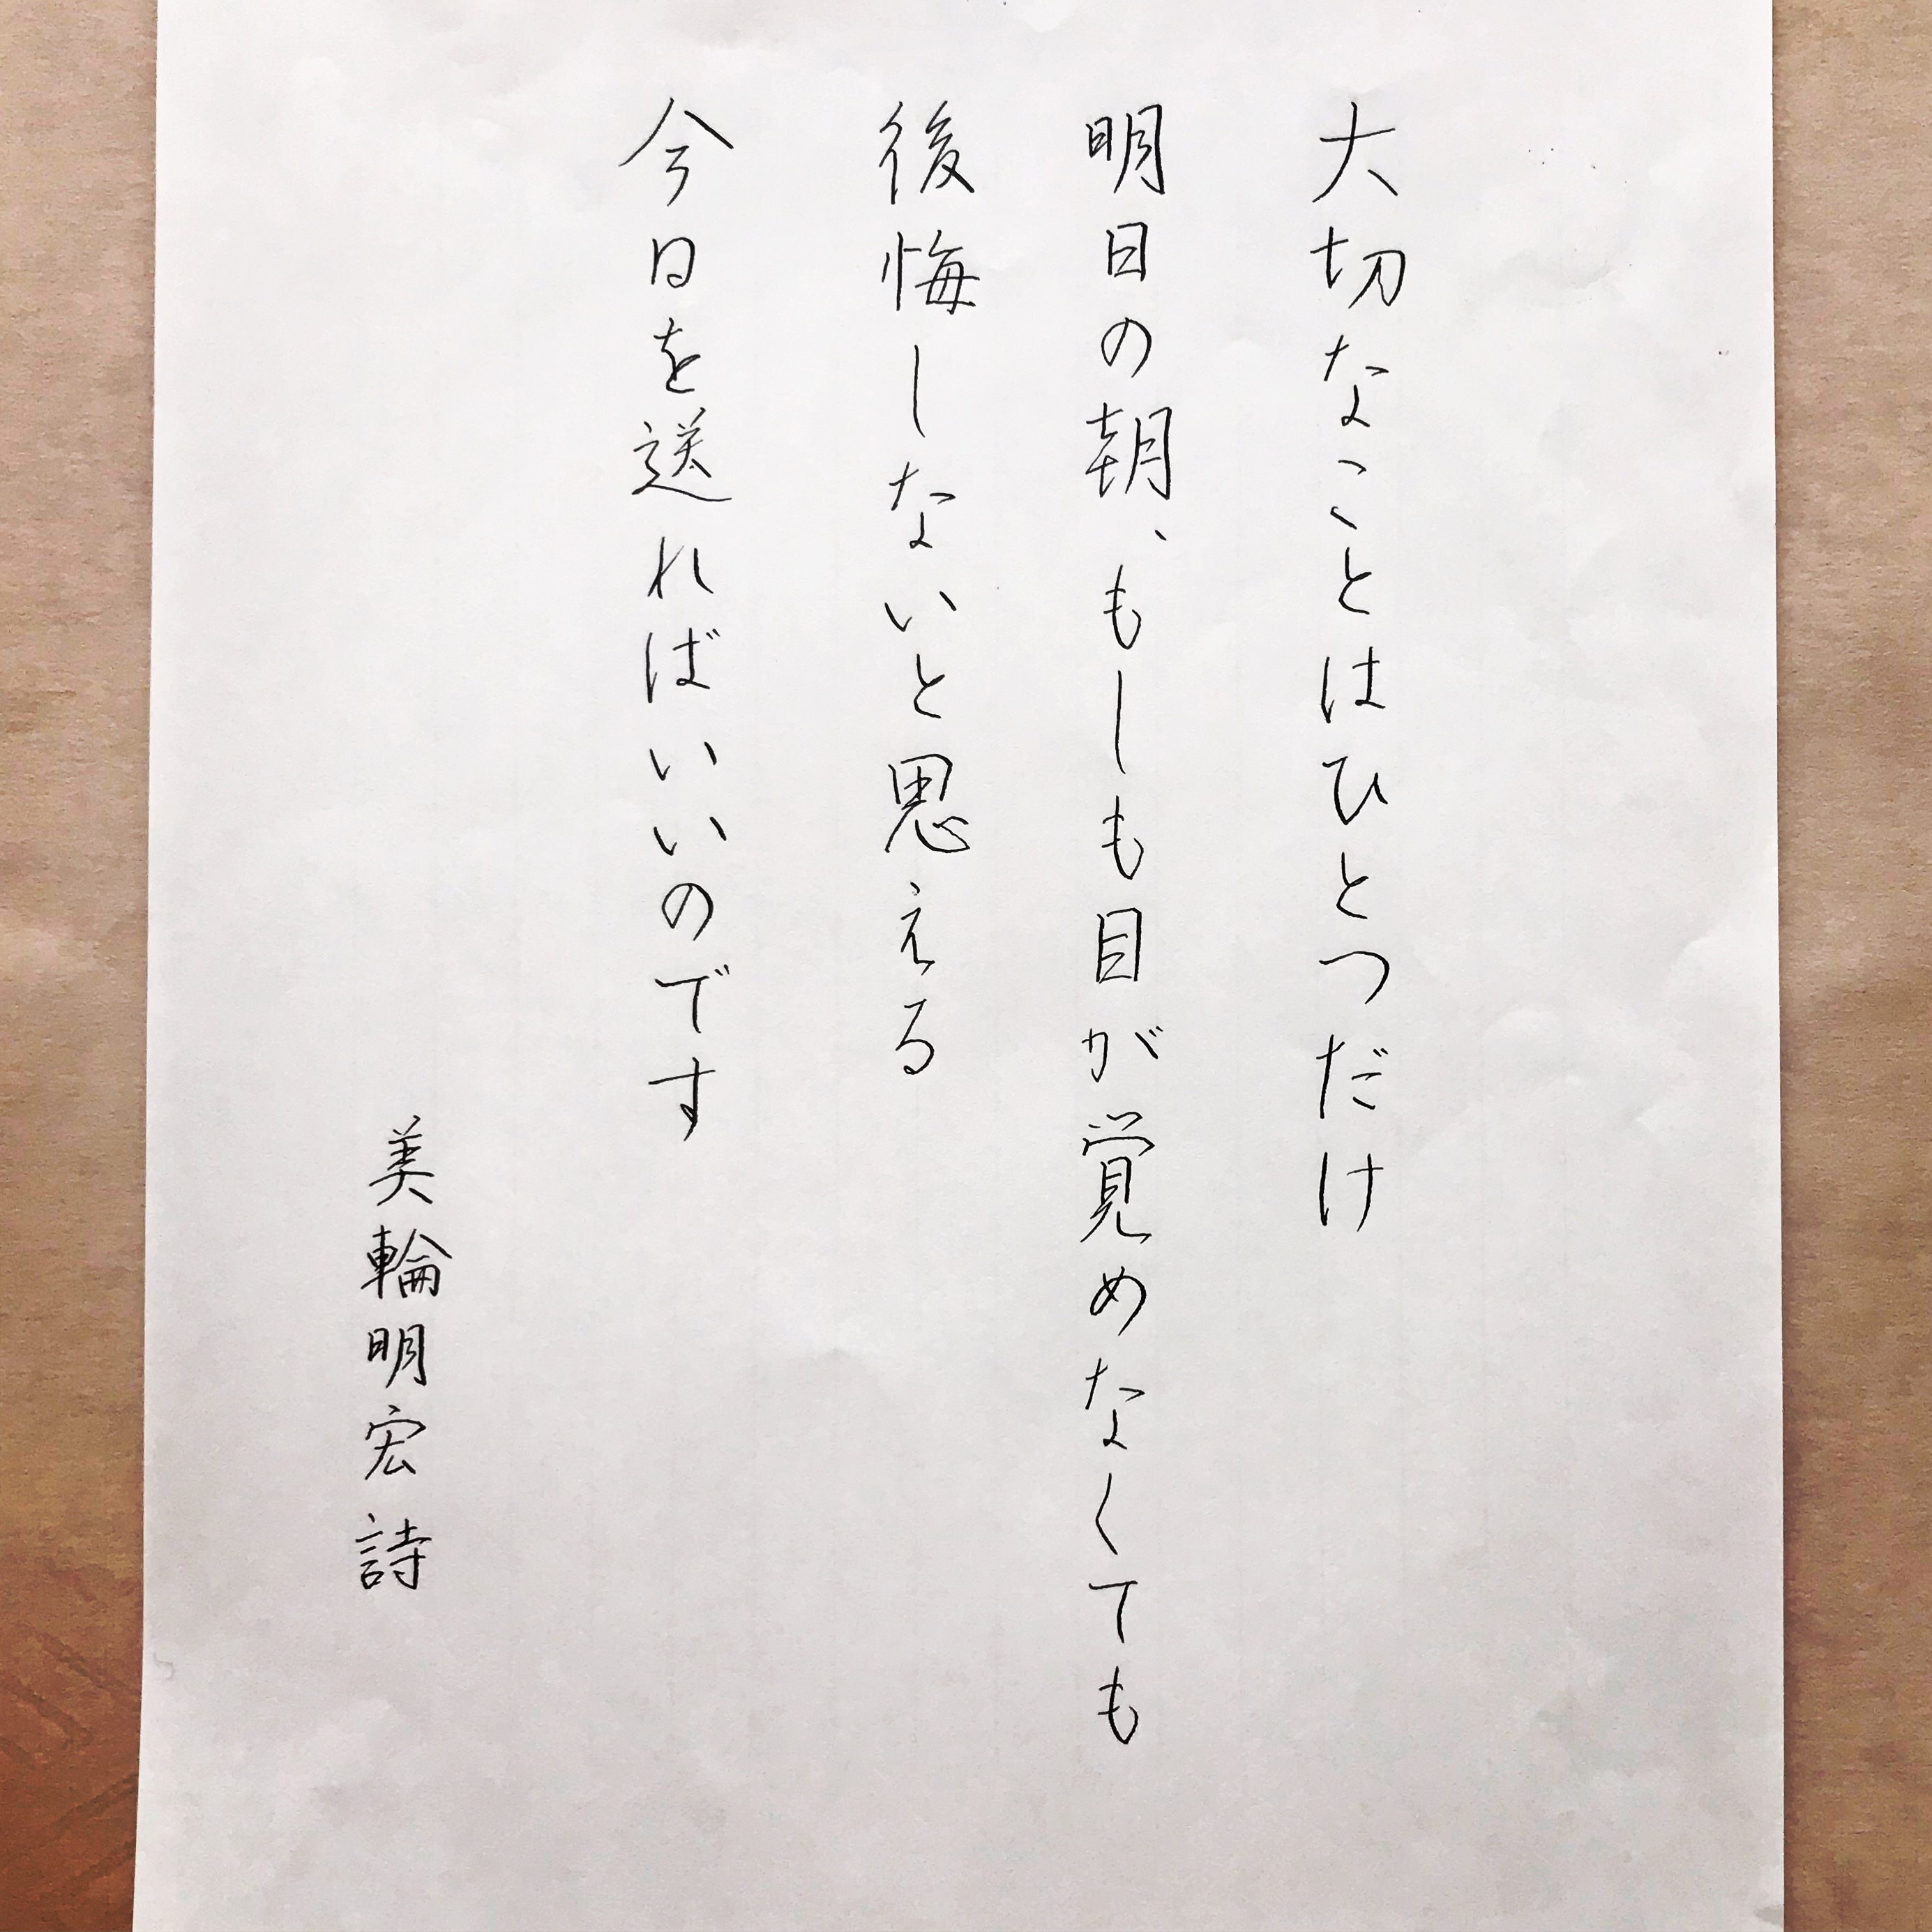 大切なことはひとつだけ
明日の朝、もしも目が覚めなくても
後悔しないと思える
今日を送ればいいのです
美輪明宏 詩